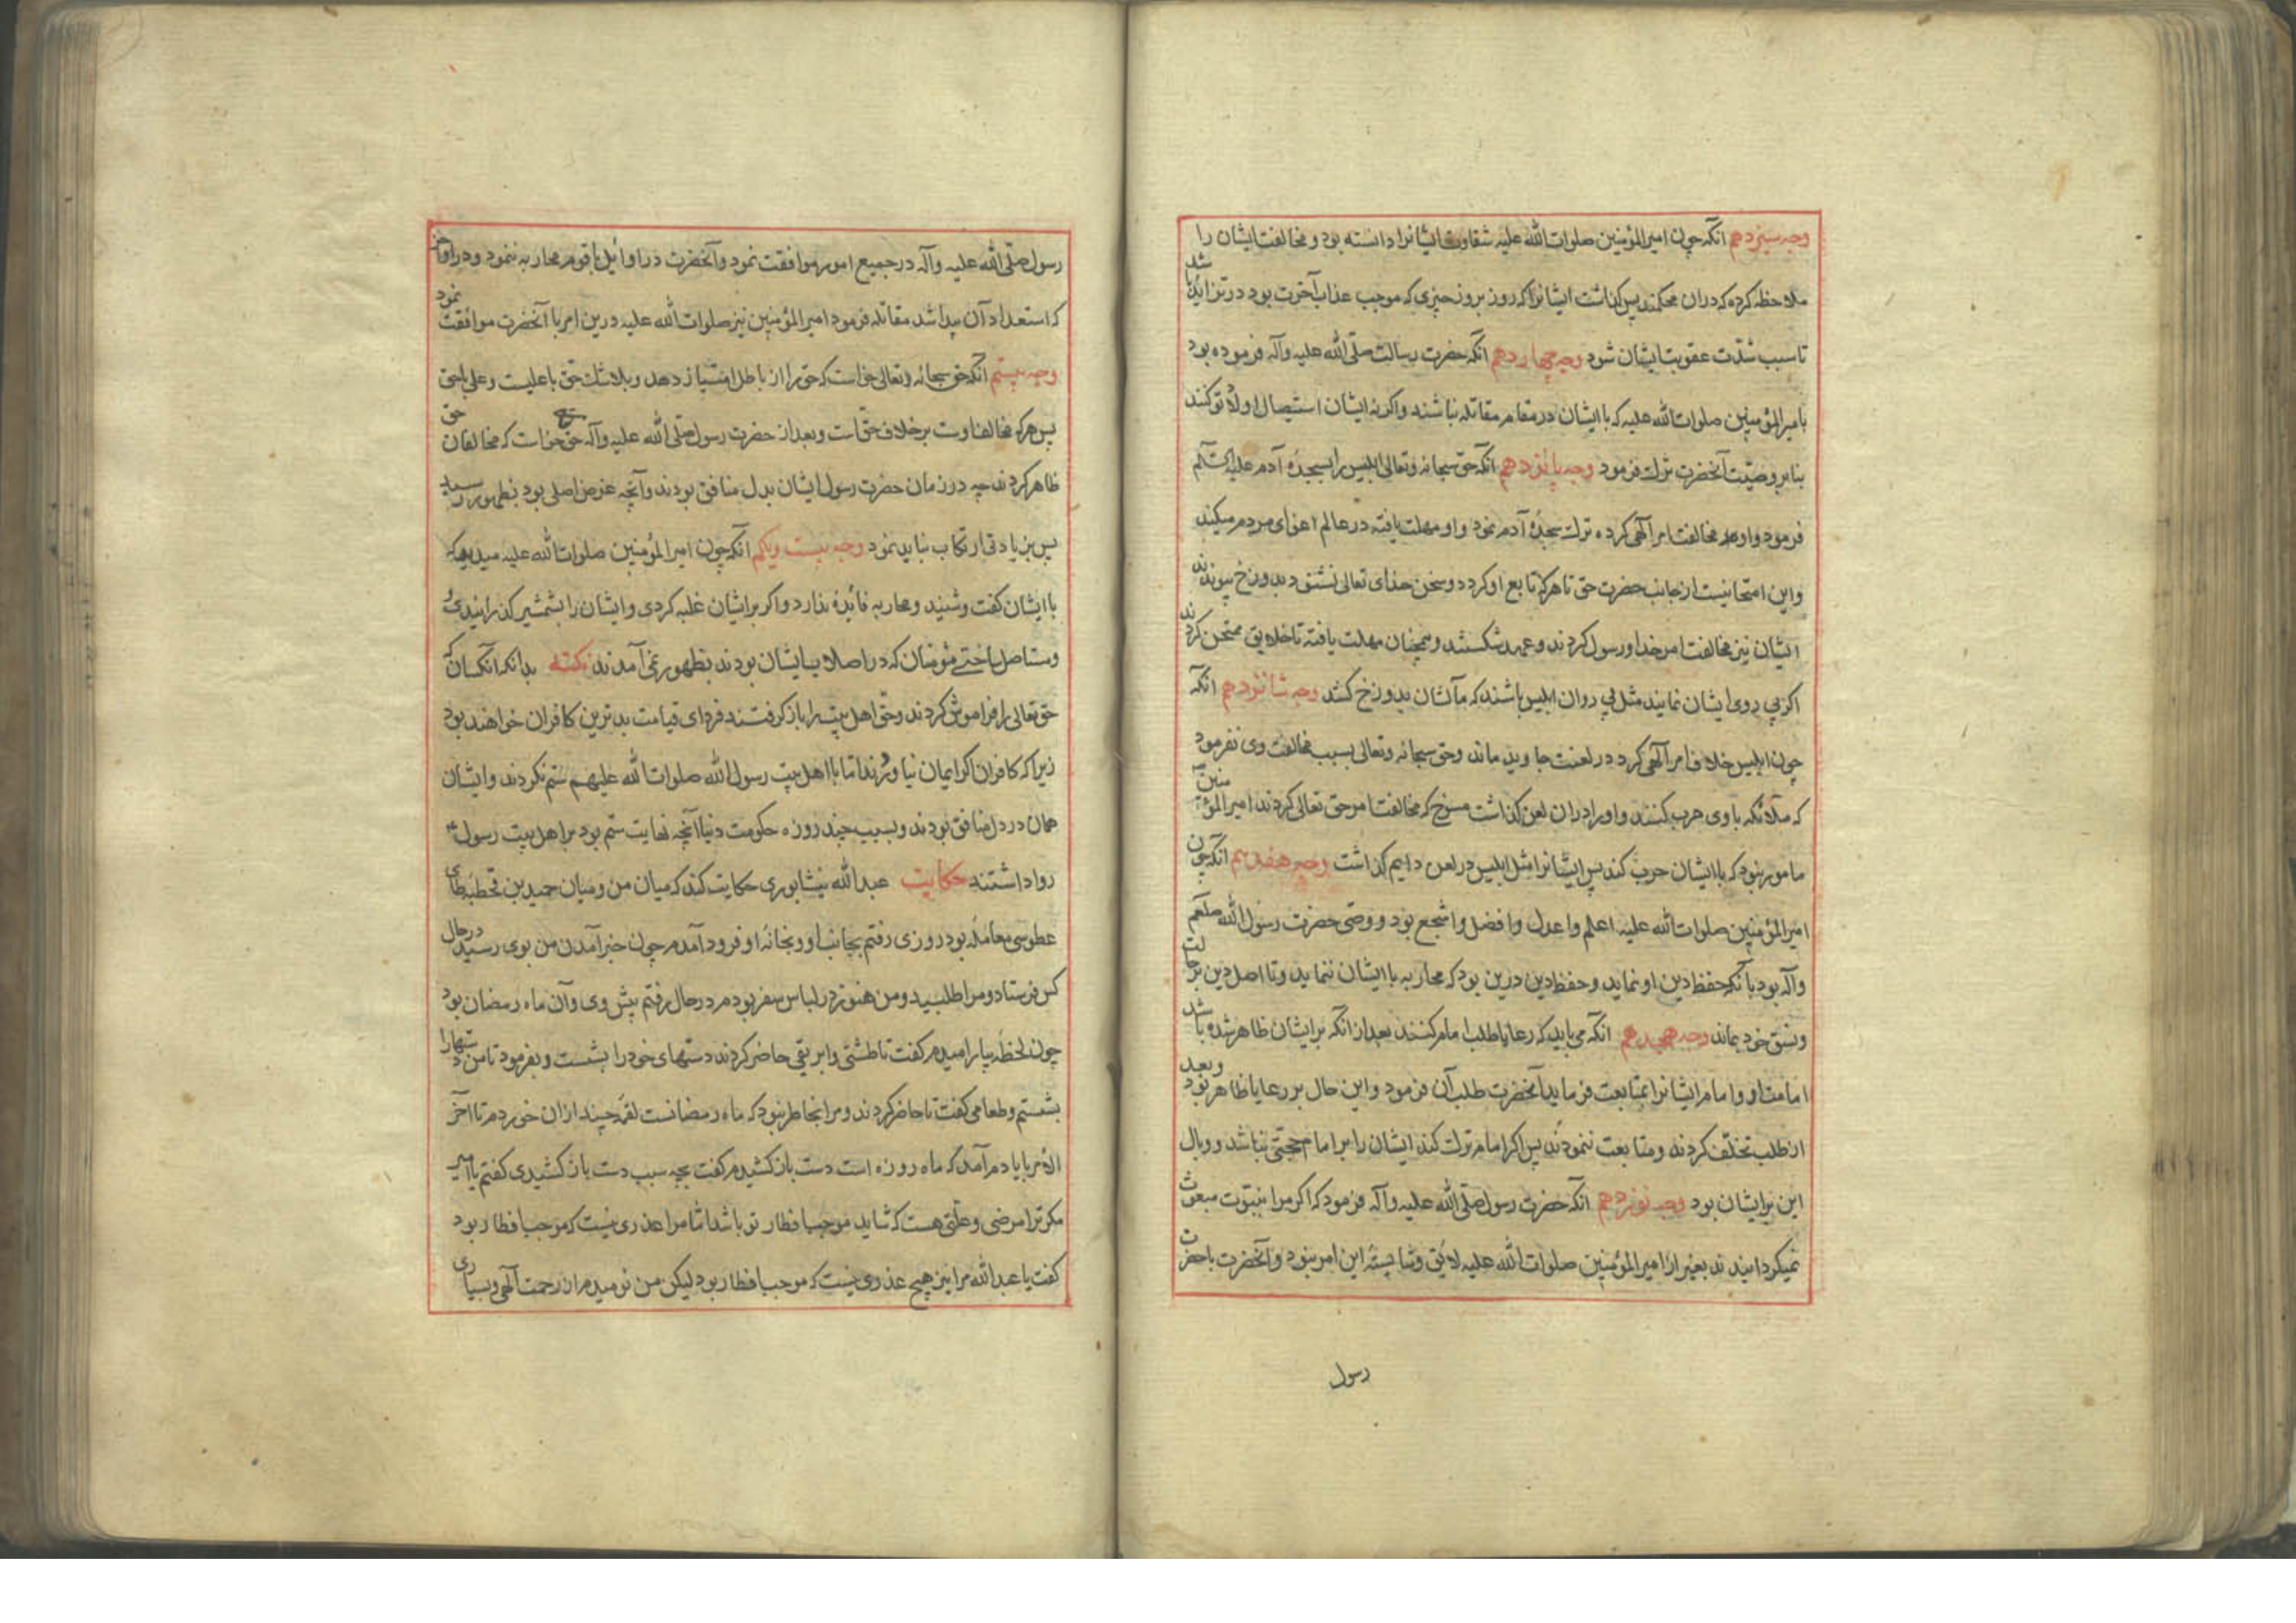 وجه سیزدهم انکه چون امیرالمؤمنین صلوات الله علیه شقاوت ایشانرا دانسته بود و مخالفت ایشان را
ملاحظه کرده که دران محکمند پس کذاشت ایشانرا که روز بروز چیزی که موجب عذاب آخرت بود در تزاید باشد
تا سبب شدّت عقوبت ایشان شود وجه چهاردهم انکه حضرت رسالت صلّی الله علیه وآله فرموده بود
بامیرالمؤمنین صلوات الله علیه که با ایشان در مقام مقاتله نباشند واکرنه ایشان استیصال اولاد تو کنند
بنابر وصیّت آنحضرت ترک فرمود وجه پانزدهم انکه حق سبحانه وتعالی ابلیس را بسجدهٔ آدم علیه السّلم
فرمود واو مخالفت امر آلهی کرده ترک سجدهٔ آدم نمود واو مهلت یافته در عالم اغوای مردم میکند
واین امتحانیست از جانب حضرت حق تا هرکه تابع او کردد وسخن خدای تعالی نشنود بدوزخ پیوندند
ایشان نیز مخالفت امر خدا ورسول کردند وعهد شکستند وهمچنان مهلت یافته تا خلایق ممتحن کردند
اکر پی روی ایشان نمایند مثل پی روان ابلیس باشند که مآلشان بدوزخ کشد وجه شانزدهم انکه
چون ابلیس خلاف امر آلهی کرد در لعنت جاوید ماند وحق سبحانه وتعالی بسبب مخالفت وی نفرمود
که ملائکه با وی حرب کنند واورا دران لعن کذاشت که مخالفت امر حق تعالی کردند امیرالمؤمنین
مامور نبود که با ایشان حرب کند پس ایشانرا مثل ابلیس در لعن دایم کذاشت وجه هفدهم انکه چون
امیرالمؤمنین صلوات الله علیه اعلم واعدل وافضل واشجع بود ووصی حضرت رسول الله صلعم
وآله بود بآنکه حفظ دین او نماید وحفظ دین درین بود که محاربه با ایشان ننماید وتا اصل دین برحالت
ونسق خود بماند وجه هجدهم انکه می باید که رعایا طلب امام کنند بعد از انکه برایشان ظاهر شده باشد
امامت او وامام ایشانرا بمتابعت فرماید آنحضرت طلب آن فرمود واین حال بر رعایا ظاهر بود وبعد
از طلب تخلّف کردند ومتابعت ننمودند پس اکر امام ترک کند ایشان را بر امام حجّتی نباشد ووبال
این برایشان بود وجه نوزدهم انکه حضرت رسول صلّی الله علیه وآله فرمود که اکر مرا بنبوّت مبعوث
نمیکردانیدند بغیر از امیرالمؤمنین صلوات الله علیه لائق وشایستهٔ این امر نبود وآنحضرت باحضرت
رسول
رسول صلّی الله علیه وآله در جمیع امور موافقت نمود وآنحضرت در اوائل با قوم محاربه ننمود ودر اواخر
که استعداد آن پیدا شد مقاتله فرمود امیرالمؤمنین نیز صلوات الله علیه درین امر با آنحضرت موافقت نمود
وجه بیستم آنکه حق سبحانه وتعالی خواست که حق را از باطل امتیاز دهد وبلاشک حق با علیست وعلی باحق
پس هرکه مخالف اوست برخلاف حق است وبعد از حضرت رسول صلّی الله علیه وآله حق خواست که مخالفان حق
ظاهر کردند چه در زمان حضرت رسول ایشان بدل منافق بودند وآنچه غرض اصلی بود بظهور رسید
پس بزیادتی ارتکاب نباید نمود وجه بیست ویکم انکه چون امیرالمؤمنین صلوات الله علیه میدید که
با ایشان کفت وشنید ومحاربه فائده ندارد واکر برایشان غلبه کردی وایشان را بشمشیر کذرانیدی
ومستاصل ساختی مؤمنان که در اصلاب ایشان بودند بظهور نمی آمدند نکته بدانکه انکسان که
حق تعالی را فراموش کردند وحق اهل بیت را باز کرفتند فردای قیامت بدترین کافران خواهند بود
زیرا که کافران اکر ایمان نیاوردند امّا با اهل بیت رسول الله صلوات الله علیهم ستم نکردند وایشان
همان در دل منافق بودند وبسبب چند روزه حکومت دنیا آنچه نهایت ستم بود بر اهل بیت رسول
روا داشتند حکایت عبدالله نیشابوری حکایت کند که میان من ومیان حمید بن قحطبه طای
طوسی معامله بود روزی رفتم بجانب او وبخانهٔ او فرود آمدم چون خبر آمدن من بوی رسید درحال
کس فرستاد ومرا طلبید ومن هنوز در لباس سفر بودم درحال رفتم پیش وی وآن ماه رمضان بود
چون لحظهٔ بیارامیدم کفت تا طشتی وابریقی حاضر کردند دستهای خودرا بشست وبفرمود تا من دستهارا
بشستم وطعامی کفت تا حاضر کردند ومرا بخاطر نبود که ماه رمضانست لقمهٔ چند ازان خوردم تا آخر
الامر بایادم آمد که ماه روزه است دست باز کشیدم کفت بچه سبب دست باز کشیدی کفتم یا امیر
مکر ترا مرضی وعلّتی هست که شاید موجب افطار تو باشد امّا مرا عذری نیست که موجب افطار بود
کفت یا عبدالله مرا نیز هیچ عذری نیست که موجب افطار بود لیکن من نومیدم از رحمت آلهی وبسیاری